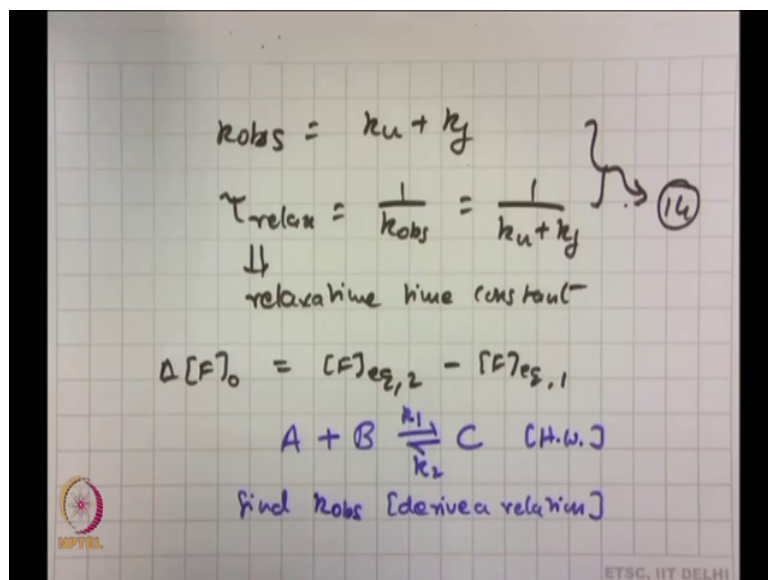 kobs = ku + kf
τrelax = 1/kobs = 1/(ku + kf)
14
⇓
relaxatime time constant
Δ[F]₀ = [F]eq,2 - [F]eq,1
A + B ⇌ C [H.W.]
k1
k2
find kobs [derive a relation]
NPTEL
ETSC, IIT DELHI